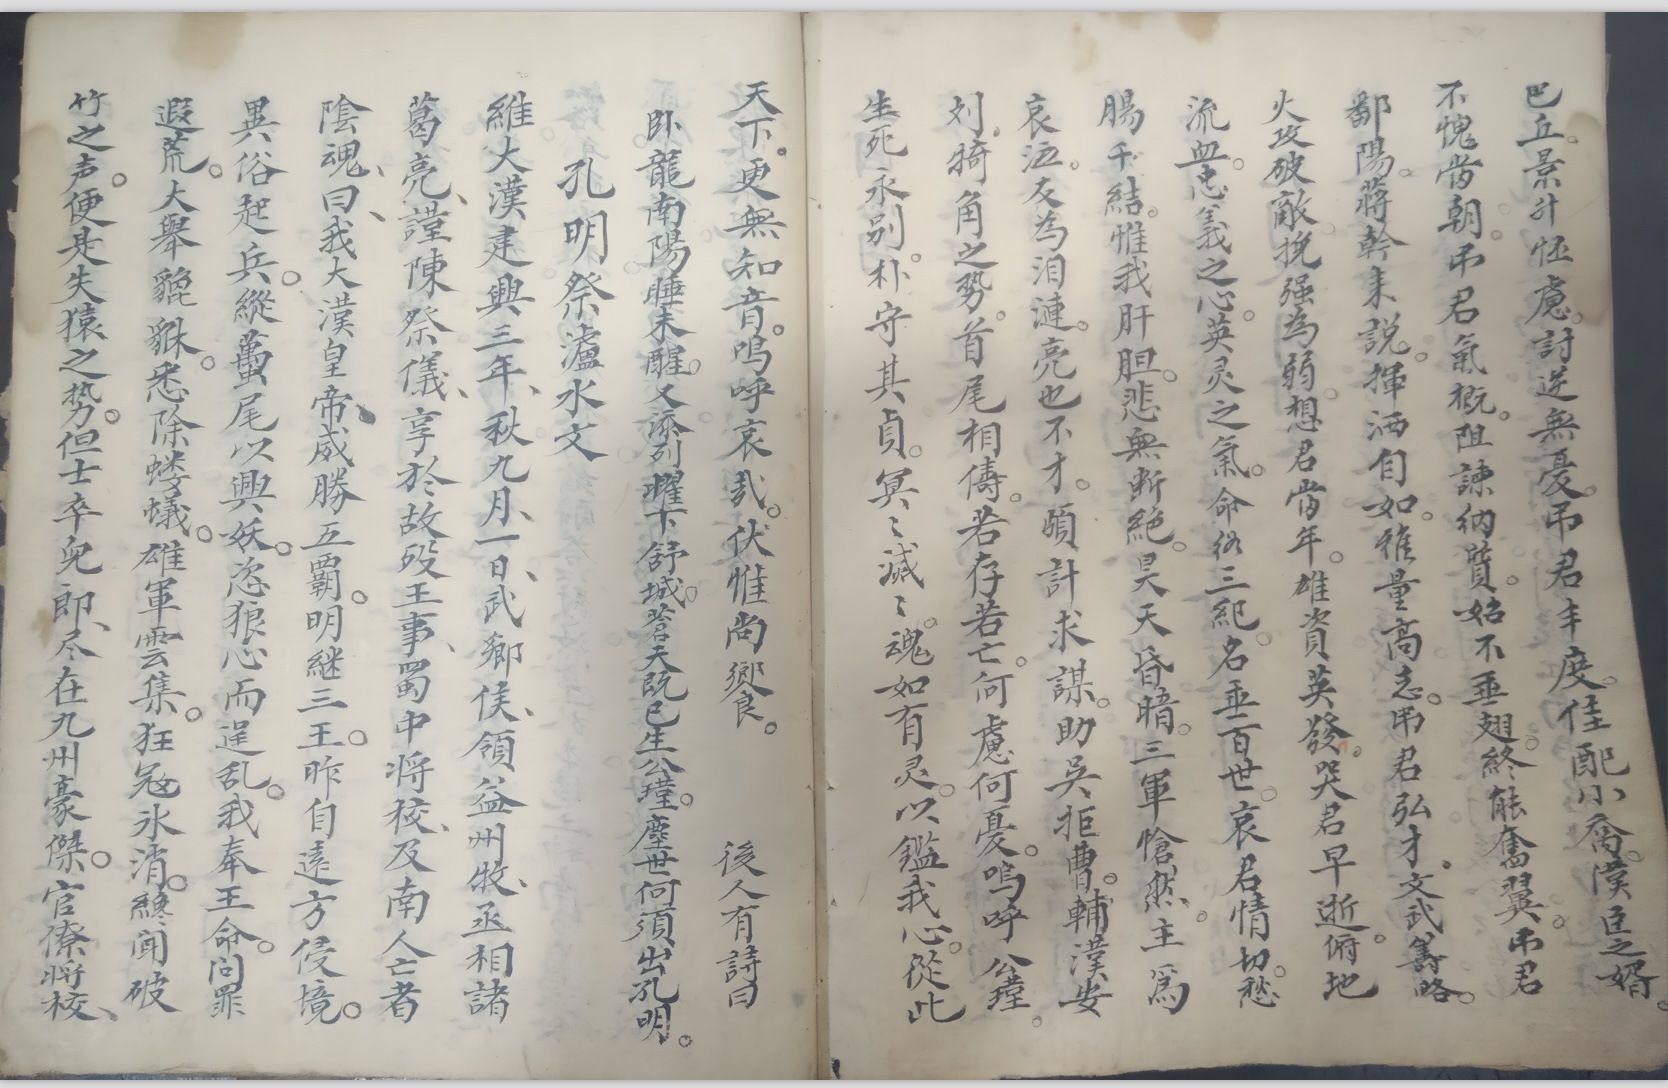 巴丘。景升怪慮。討逆無憂。吊君丰度。佳配小喬。漢臣之婿。
不愧當朝。吊君氣概。阻諫納質。始不垂翅。終能奮翼。吊君
鄱陽。蔣幹来說。揮洒自如。雅量高志。吊君弘才。文武籌略。
火攻破敵。挽强為弱。想君當年。雄資英發。哭君早逝。俯地
流血。忠義之心。英灵之氣。命终三紀。名垂百世。哀君情切。愁
腸千結。惟我肝胆。悲無断絶。昊天昏暗。三軍愴然。主為
哀泣。友為泪漣。亮也不才。頭計求謀。助吳拒曹。輔漢安
刘。犄角之勢。首尾相儔。若存若亡。何慮何憂。嗚呼公瑾。
生死永别。朴守其貞。冥〻滅〻。魂如有灵。以鑑我心。從此
天下。更無知音。嗚呼哀哉。伏惟尚饗。 後人有詩曰
卧龍南陽睡未醒。又添列曜下舒城。苍天既已生公瑾。塵世何須出孔明。
孔明祭瀘水文
維大漢建興三年、秋九月、一日、武鄉侯、領益州牧、丞相諸
葛亮、謹陳祭儀、享於故殁王事、蜀中将校、及南人亡者
陰魂、曰、我大漢皇帝、威勝五覇。明継三王。昨自遠方侵境。
異俗起兵。縱蠆尾以興妖。恣狼心而逞乱。我奉王命。问罪
遐荒。大舉貔貅。悉除蝼蟻。雄軍雲集。狂冦氷消。終闻破
竹之声。便是失猿之势。但士卒兒郎、尽在九州豪傑。官僚將校、